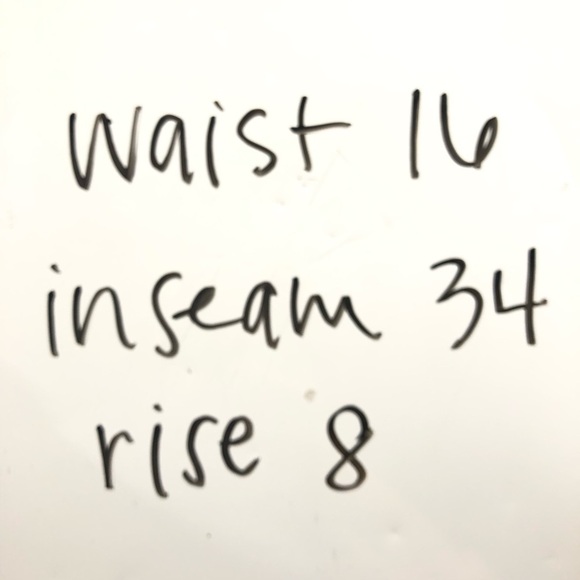 waist 16
inseam 34
rise 8